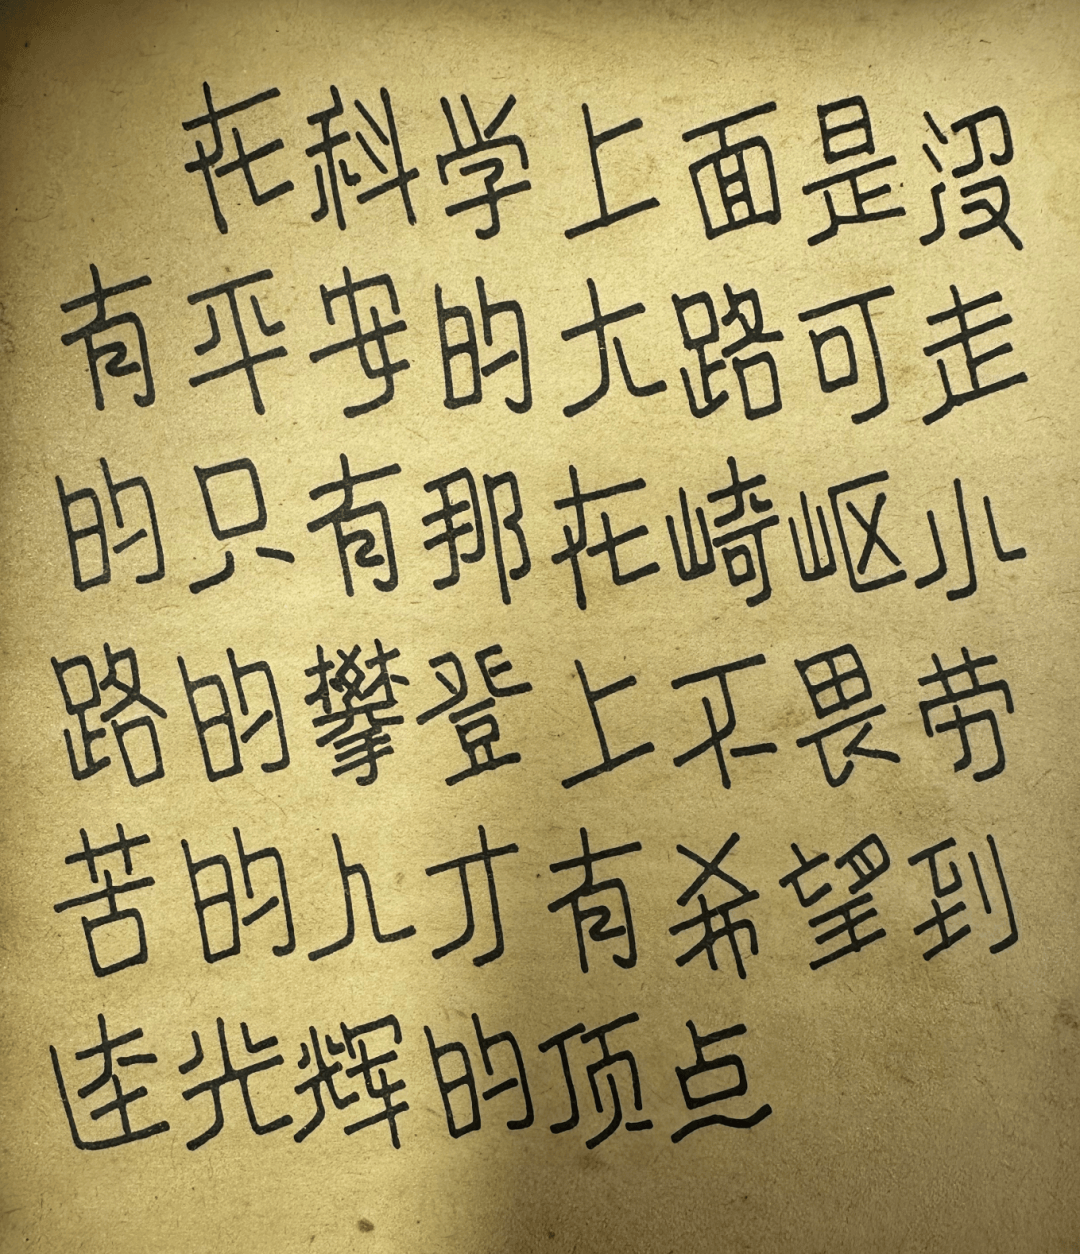 在科学上面是没
有平安的大路可走
的只有那在崎岖小
路的攀登上不畏劳
苦的人才有希望到
达光辉的顶点